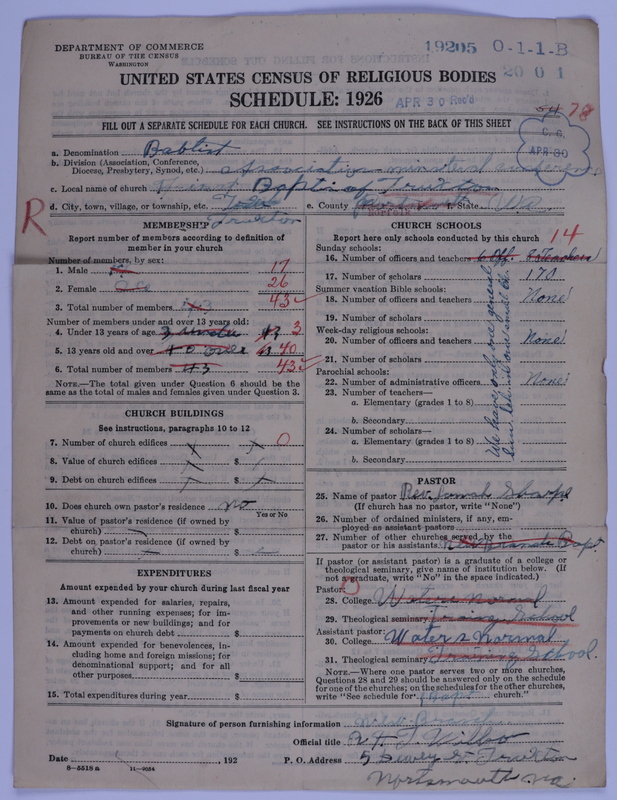 DEPARTMENT OF COMMERCE
BUREAU OF THE CENSUS
WASHINGTON
19205 O-1-1-B
2001
UNITED STATES CENSUS OF RELIGIOUS BODIES
SCHEDULE: 1926
APR 30 Rec'd
78
FILL OUT A SEPARATE SCHEDULE FOR EACH CHURCH. SEE INSTRUCTIONS ON THE BACK OF THIS SHEET
C. S.
APR 30
a. Denomination Babtist
b. Division (Association, Conference,
Diocese, Presbytery, Synod, etc.)
c. Local name of church Baptis of Truxton
d. City, town, village, or township, etc. Truxton
e. County f. State Va.
R
MEMBERSHIP
Report number of members according to definition of
member in your church
Number of members, by sex:
1. Male 17
2. Female 26
3. Total number of members 43
Number of members under and over 13 years old:
4. Under 13 years of age 3
5. 13 years old and over 40
6. Total number of members 43 43
NOTE.—The total given under Question 6 should be the
same as the total of males and females given under Question 3.
CHURCH BUILDINGS
See instructions, paragraphs 10 to 12
7. Number of church edifices 0
8. Value of church edifices $
9. Debt on church edifices $
10. Does church own pastor's residence no
Yes or No
11. Value of pastor's residence (if owned by
church) $
12. Debt on pastor's residence (if owned by
church) $
EXPENDITURES
Amount expended by your church during last fiscal year
13. Amount expended for salaries, repairs,
and other running expenses; for im-
provements or new buildings; and for
payments on church debt $
14. Amount expended for benevolences, in-
cluding home and foreign missions; for
denominational support; and for all
other purposes $
15. Total expenditures during year $
CHURCH SCHOOLS
Report here only schools conducted by this church 14
Sunday schools:
16. Number of officers and teachers 6 Off. 8 Teachers!
17. Number of scholars 170
Summer vacation Bible schools:
18. Number of officers and teachers None!
19. Number of scholars
Week-day religious schools:
20. Number of officers and teachers None!
21. Number of scholars
Parochial schools:
22. Number of administrative officers None!
23. Number of teachers—
a. Elementary (grades 1 to 8)
b. Secondary
24. Number of scholars—
a. Elementary (grades 1 to 8)
b. Secondary
We have only one general
PASTOR
25. Name of pastor Rev. Jonah Sharpe
(If church has no pastor, write "None")
26. Number of ordained ministers, if any, em-
ployed as assistant pastors
27. Number of other churches served by the
pastor or his assistants New Branch Bapt
If pastor (or assistant pastor) is a graduate of a college or
theological seminary, give name of institution below. (If
not a graduate, write "No" in the space indicated.)
Pastor: 0
28. College Waters Normal
29. Theological seminary School
Assistant pastor:
30. College Waters Normal
31. Theological seminary Training School.
NOTE.—Where one pastor serves two or more churches,
Questions 28 and 29 should be answered only on the schedule
for one of the churches; on the schedules for the other churches,
write "See schedule for Bapt church."
Signature of person furnishing information
Official title
Date , 192
P. O. Address 5 Dewey St Truxton
Portsmouth Va.
8-5518 a 11-9054